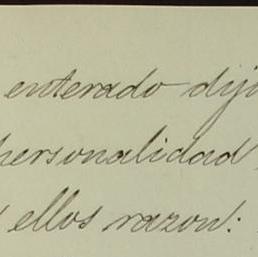 enterado dij
personalidad
ellos razon: